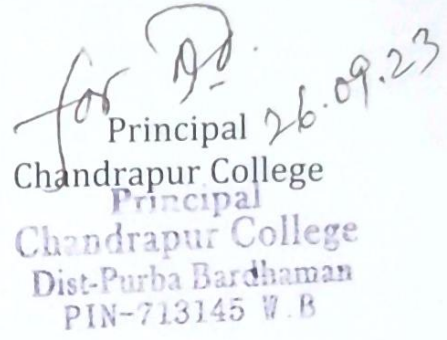 for
Principal 26.09.23
Chandrapur College
Principal
Chandrapur College
Dist-Purba Bardhaman
PIN-713145 W.B